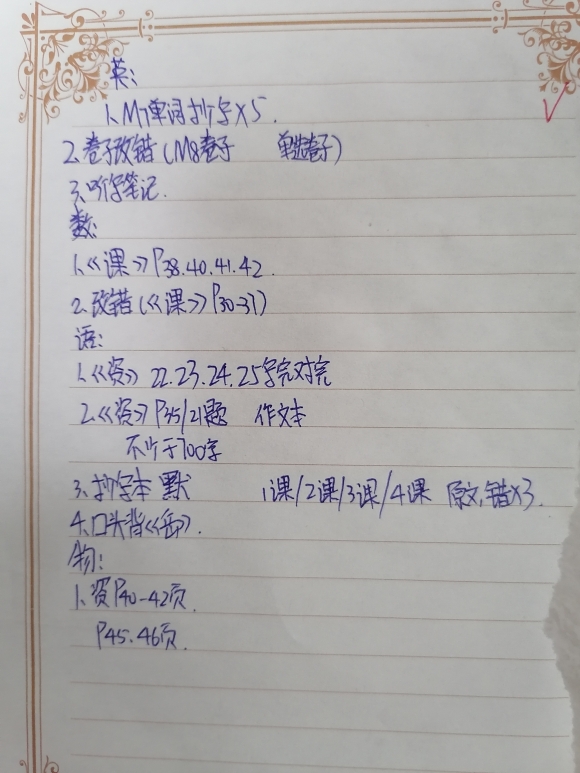 英:
1、M7单词抄写×5.
2、卷子改错(M8卷子 单选卷子)
3、听写笔记.
数:
1、《课》P38.40.41.42.
2、改错(《课》P30-31)
语:
1、《资》22.23.24.25写完对完
2、《资》P35/21题 作文本
不少于700字
3、抄写本 默 1课/2课/3课/4课 原文,错×3.
4、口头背《岳》.
物:
1、资P40-42页.
P45.46页.